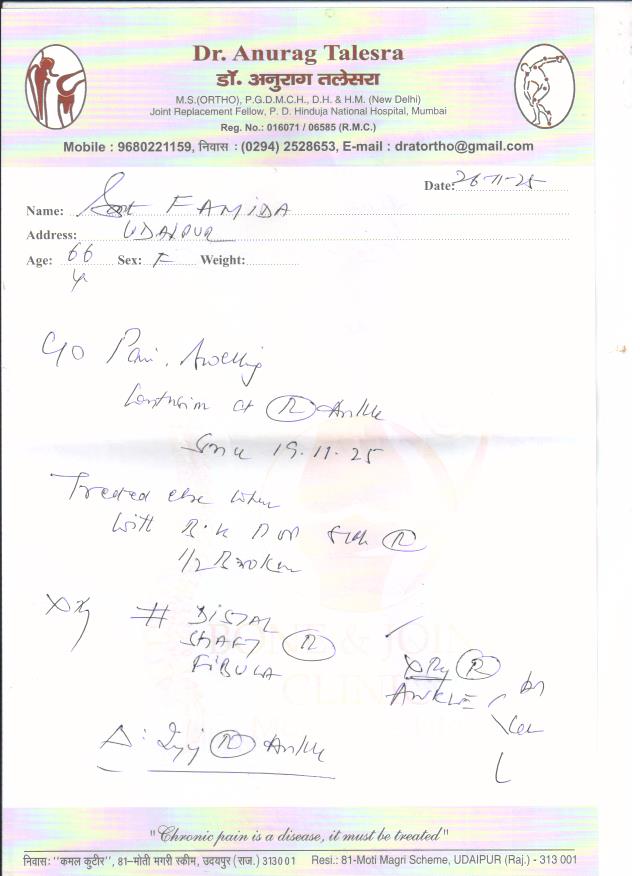 Dr. Anurag Talesra
डॉ. अनुराग तलेसरा
M.S.(ORTHO), P.G.D.M.C.H., D.H. & H.M. (New Delhi)
Joint Replacement Fellow, P. D. Hinduja National Hospital, Mumbai
Reg. No.: 016071 / 06585 (R.M.C.)
Mobile : 9680221159, निवास : (0294) 2528653, E-mail : dratortho@gmail.com
Date: 26-11-25
Name: FAMIDA
Address: UDAIPUR
Age: 66 y Sex: F Weight:
C/O Pain, Swelling
at R Ankle
Since 19.11.25
Treated else where
with B.K POP Slab R
1/2 Broken
Xray # DISTAL
SHAFT R
FIBULA
XRay R
ANKLE AP
Lat
Δ: Inj R Ankle
BONE & JOINT
CLINIC
"Chronic pain is a disease, it must be treated"
निवास: "कमल कुटीर", 81-मोती मगरी स्कीम, उदयपुर (राज.) 313001 Resi.: 81-Moti Magri Scheme, UDAIPUR (Raj.) - 313 001